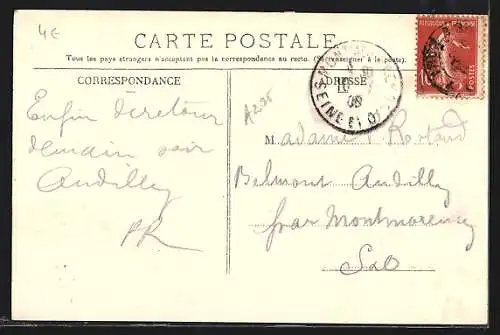 4€
CARTE POSTALE
Tous les pays étrangers n'acceptent pas la correspondance au recto. (Se renseigner à la poste).
CORRESPONDANCE
ADRESSE
A235
Enfin de retour
demain soir
Andilly
PR
Madame P Rostand
Belmont Andilly
par Montmorency
S&O
SEINE ET O
08
POSTES